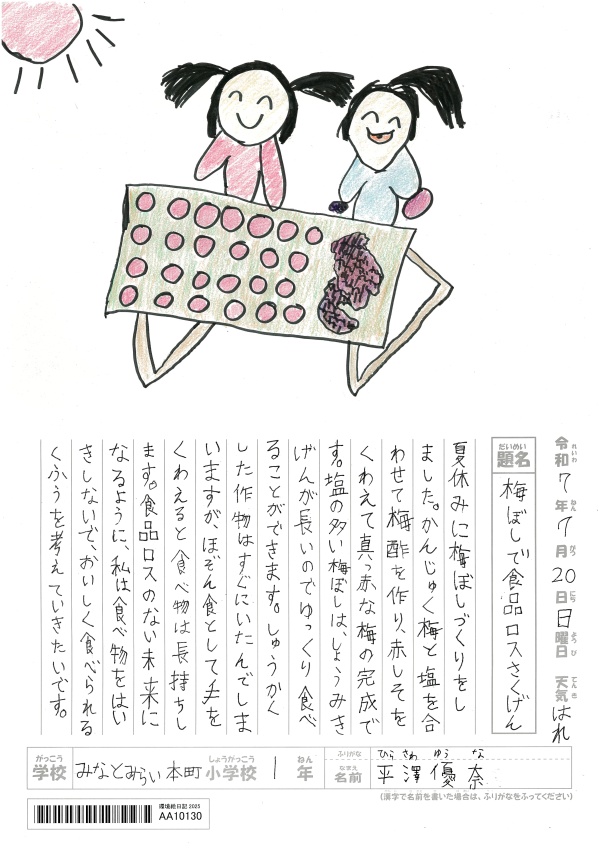 令和7年7月20日日曜日 天気はれ
れいわ ねん がつ にち ようび てんき
だいめい
題名 梅ぼしで食品ロスさくげん
夏休みに梅ぼしづくりをし
ました。かんじゅく梅と塩を合
わせて梅酢を作り、赤しそを
くわえて真っ赤な梅の完成で
す。塩の多い梅ぼしは、しょうみき
げんが長いのでゆっくり食べ
ることができます。しゅうかく
した作物はすぐにいたんでしま
いますが、ほぞん食として手を
くわえると食べ物は長持ちし
ます。食品ロスのない未来に
なるように、私は食べ物をはい
きしないで、おいしく食べられる
くふうを考えていきたいです。
がっこう しょうがっこう ねん
学校 みなとみらい本町小学校 1年
ふりがな ひらさわ ゆうな
なまえ
名前 平澤優奈
(漢字で名前を書いた場合は、ふりがなをふってください)
環境絵日記 2025
AA10130